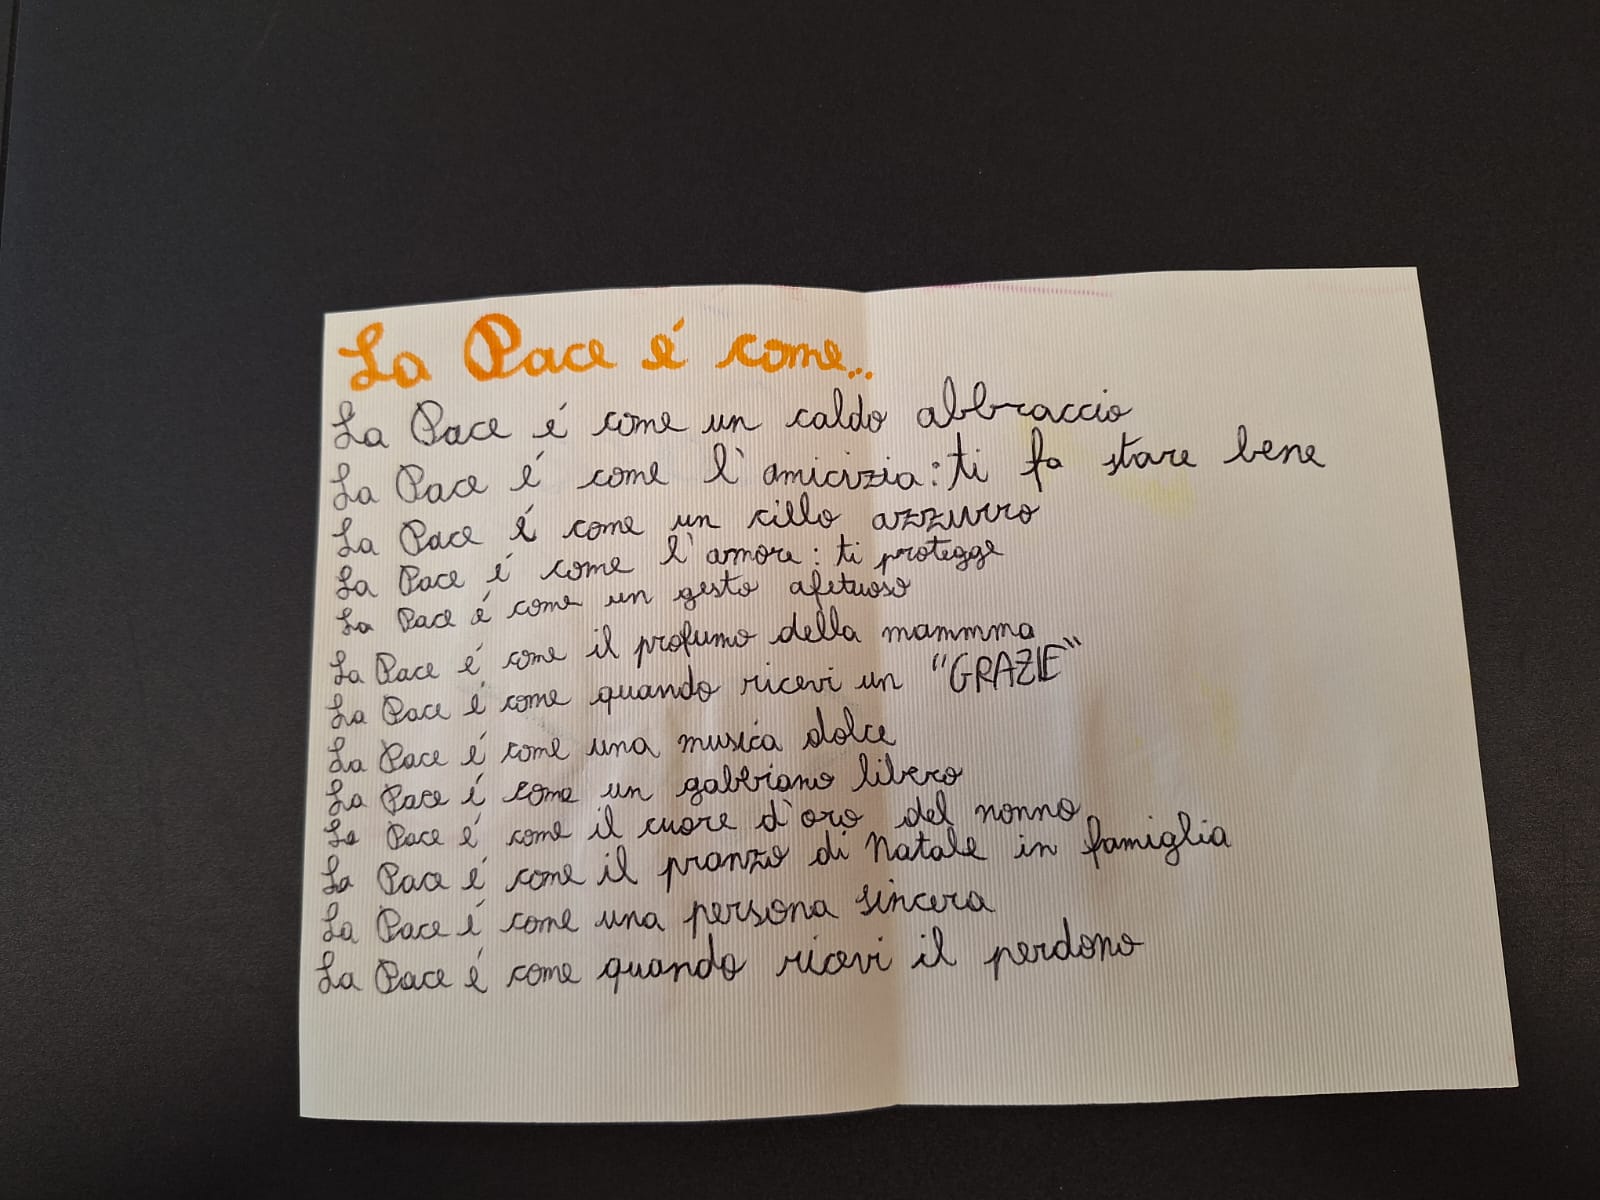 La Pace é come...
La Pace é come un caldo abbraccio
La Pace é come l'amicizia: ti fa stare bene
La Pace é come un cillo azzurro
La Pace é come l'amore: ti protegge
La Pace é come un gesto afetuoso
La Pace é come il profumo della mammma
La Pace é come quando ricevi un "GRAZIE"
La Pace é come una musica dolce
La Pace é come un gabbiano libero
La Pace é come il cuore d'oro del nonno
La Pace é come il pranzo di Natale in famiglia
La Pace é come una persona sincera
La Pace é come quando ricevi il perdono